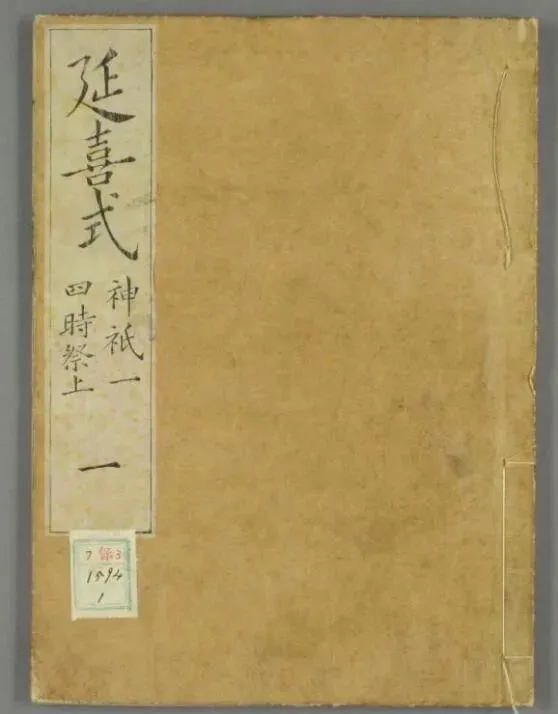 延喜式
神祇一
四時祭上
一
ワ 3
1594
1